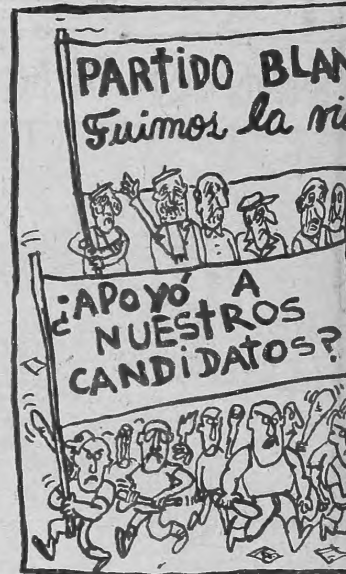 PARTIDO BLAN
Fuimos la vi
¿APOYÓ A
NUESTROS
CANDIDATOS?